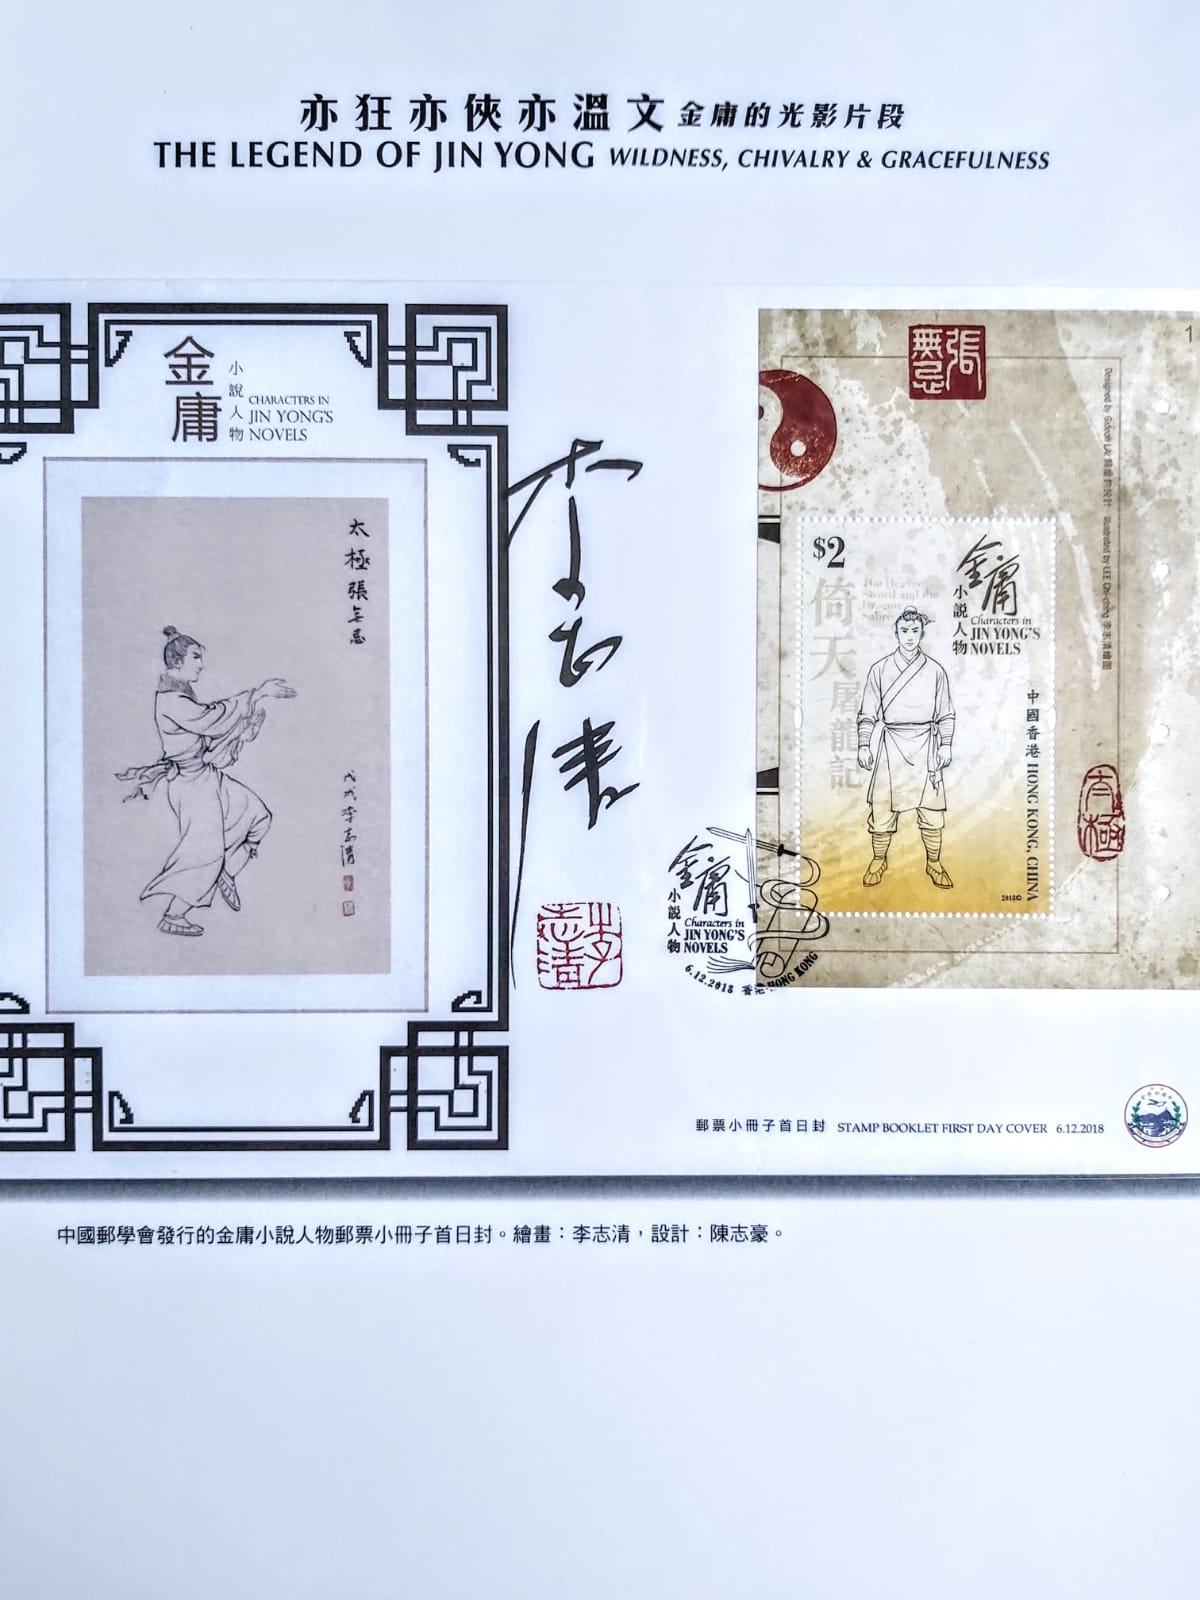 亦狂亦俠亦溫文 金庸的光影片段
THE LEGEND OF JIN YONG WILDNESS, CHIVALRY & GRACEFULNESS
金庸
小說人物
CHARACTERS IN
JIN YONG'S
NOVELS
太極張無忌
戊戌李志清
李志清
李志清
張無忌
1
$2
倚天屠龍記
The Heaven
Sword and the
Dragon
Sabre
金庸
小說人物
Characters in
JIN YONG'S
NOVELS
中國香港 HONG KONG, CHINA
2018©
太極
Illustrated by LEE Chi-ching 李志清繪圖
金庸
小說人物
Characters in
JIN YONG'S
NOVELS
6.12.2018 香港 HONG KONG
郵票小冊子首日封 STAMP BOOKLET FIRST DAY COVER 6.12.2018
中國郵學會發行的金庸小說人物郵票小冊子首日封。繪畫：李志清，設計：陳志豪。